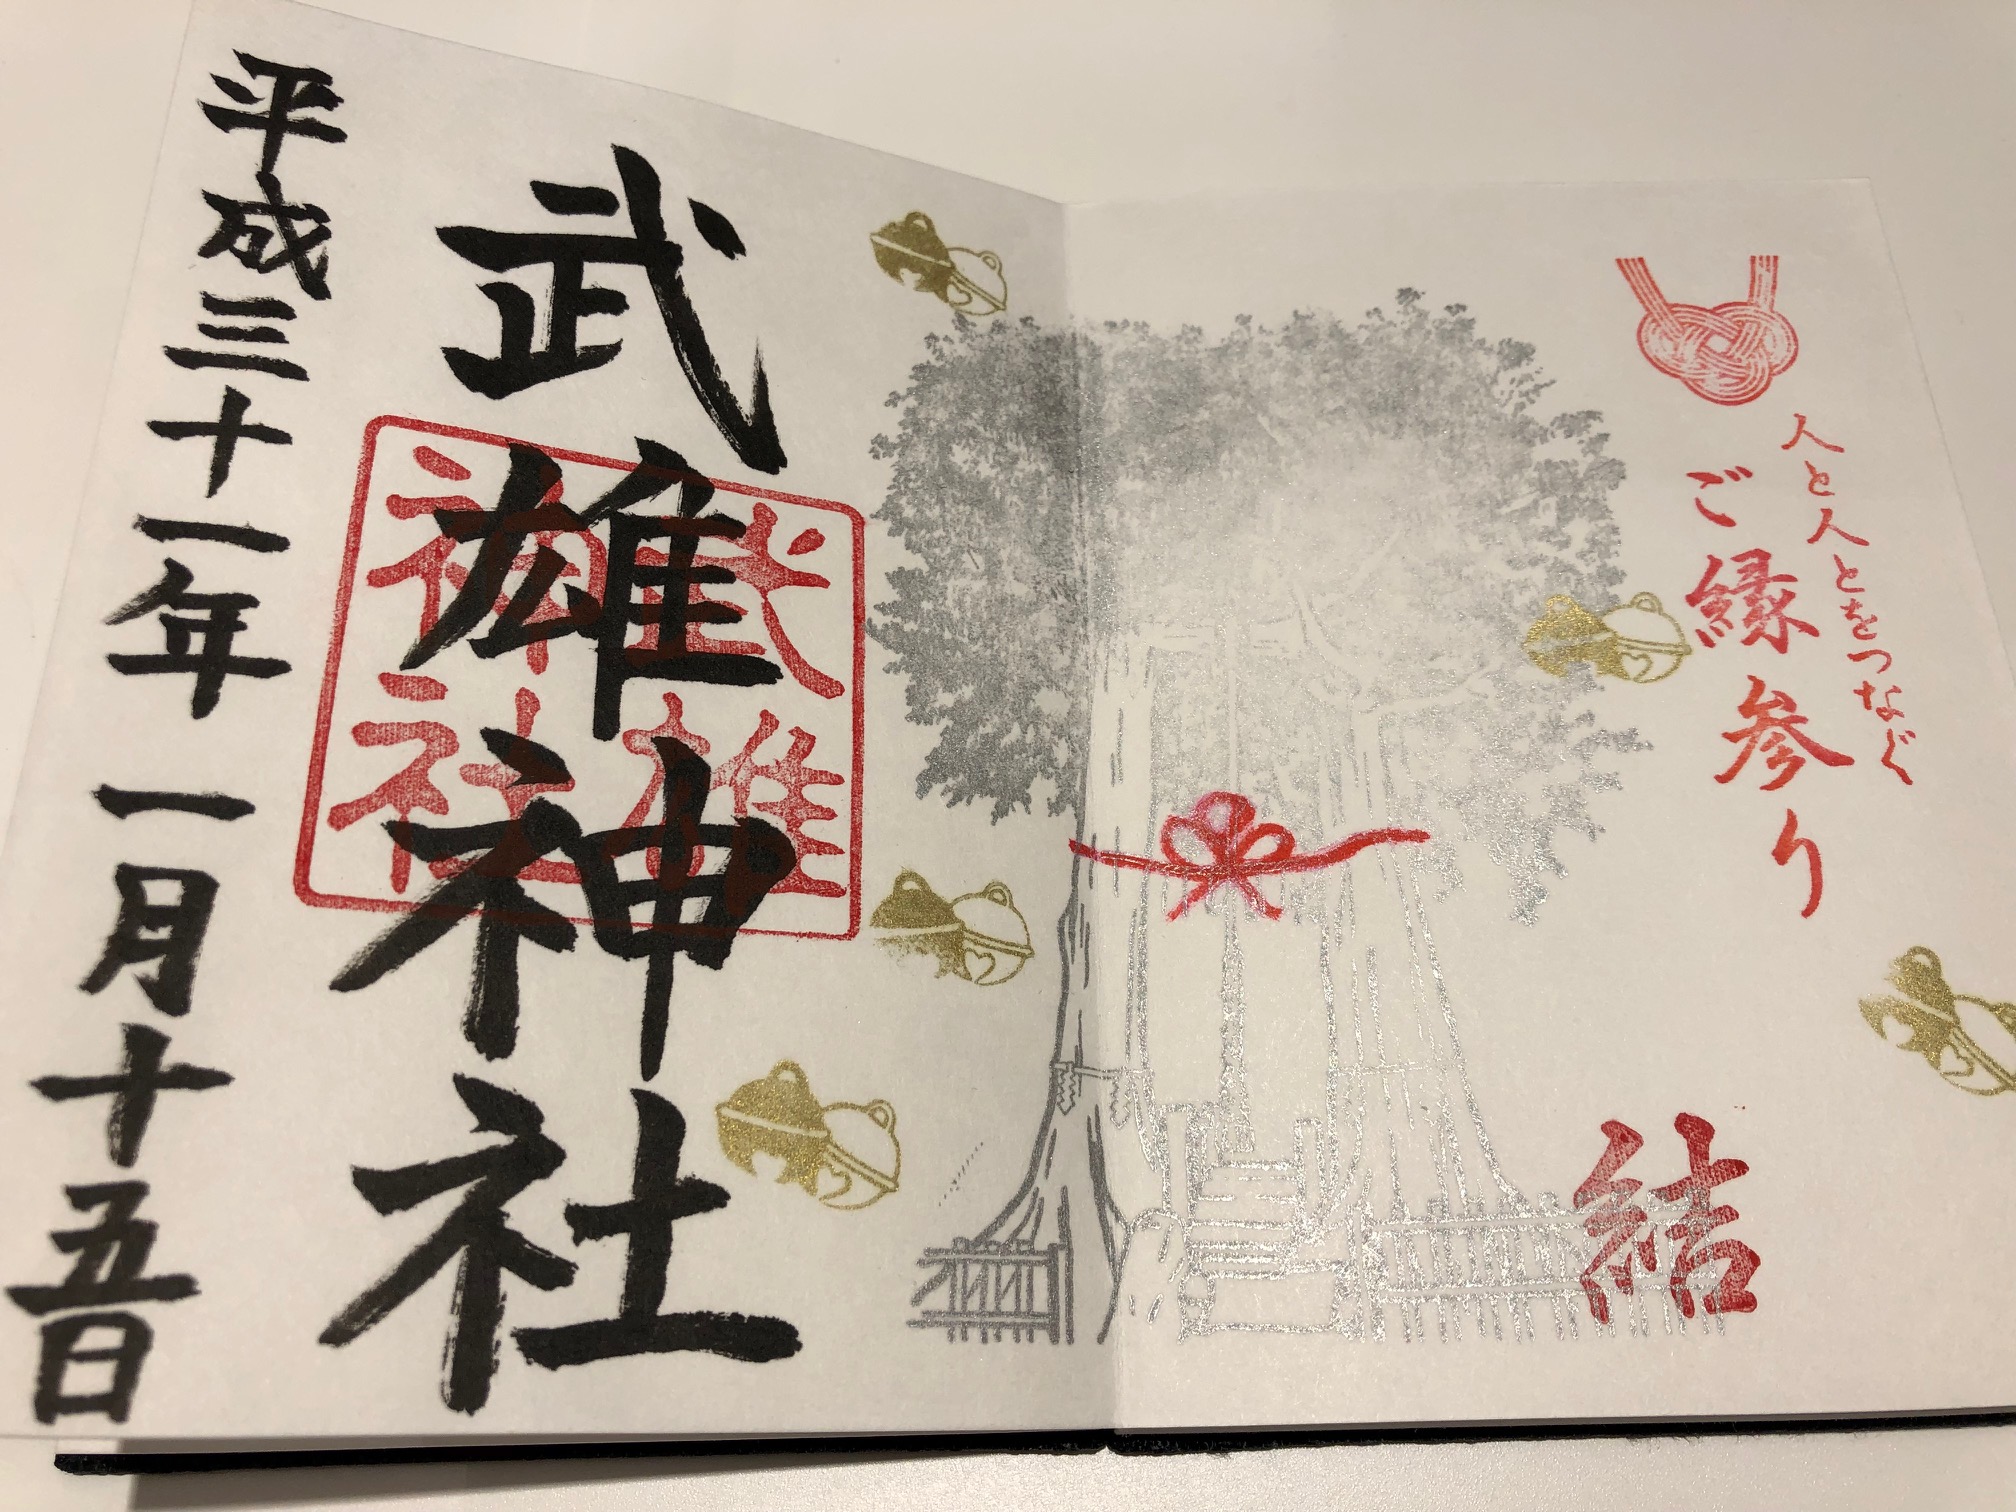 人と人とをつなぐ
ご縁参り
結
武雄神社
武雄
神社
平成三十一年 一月十五日